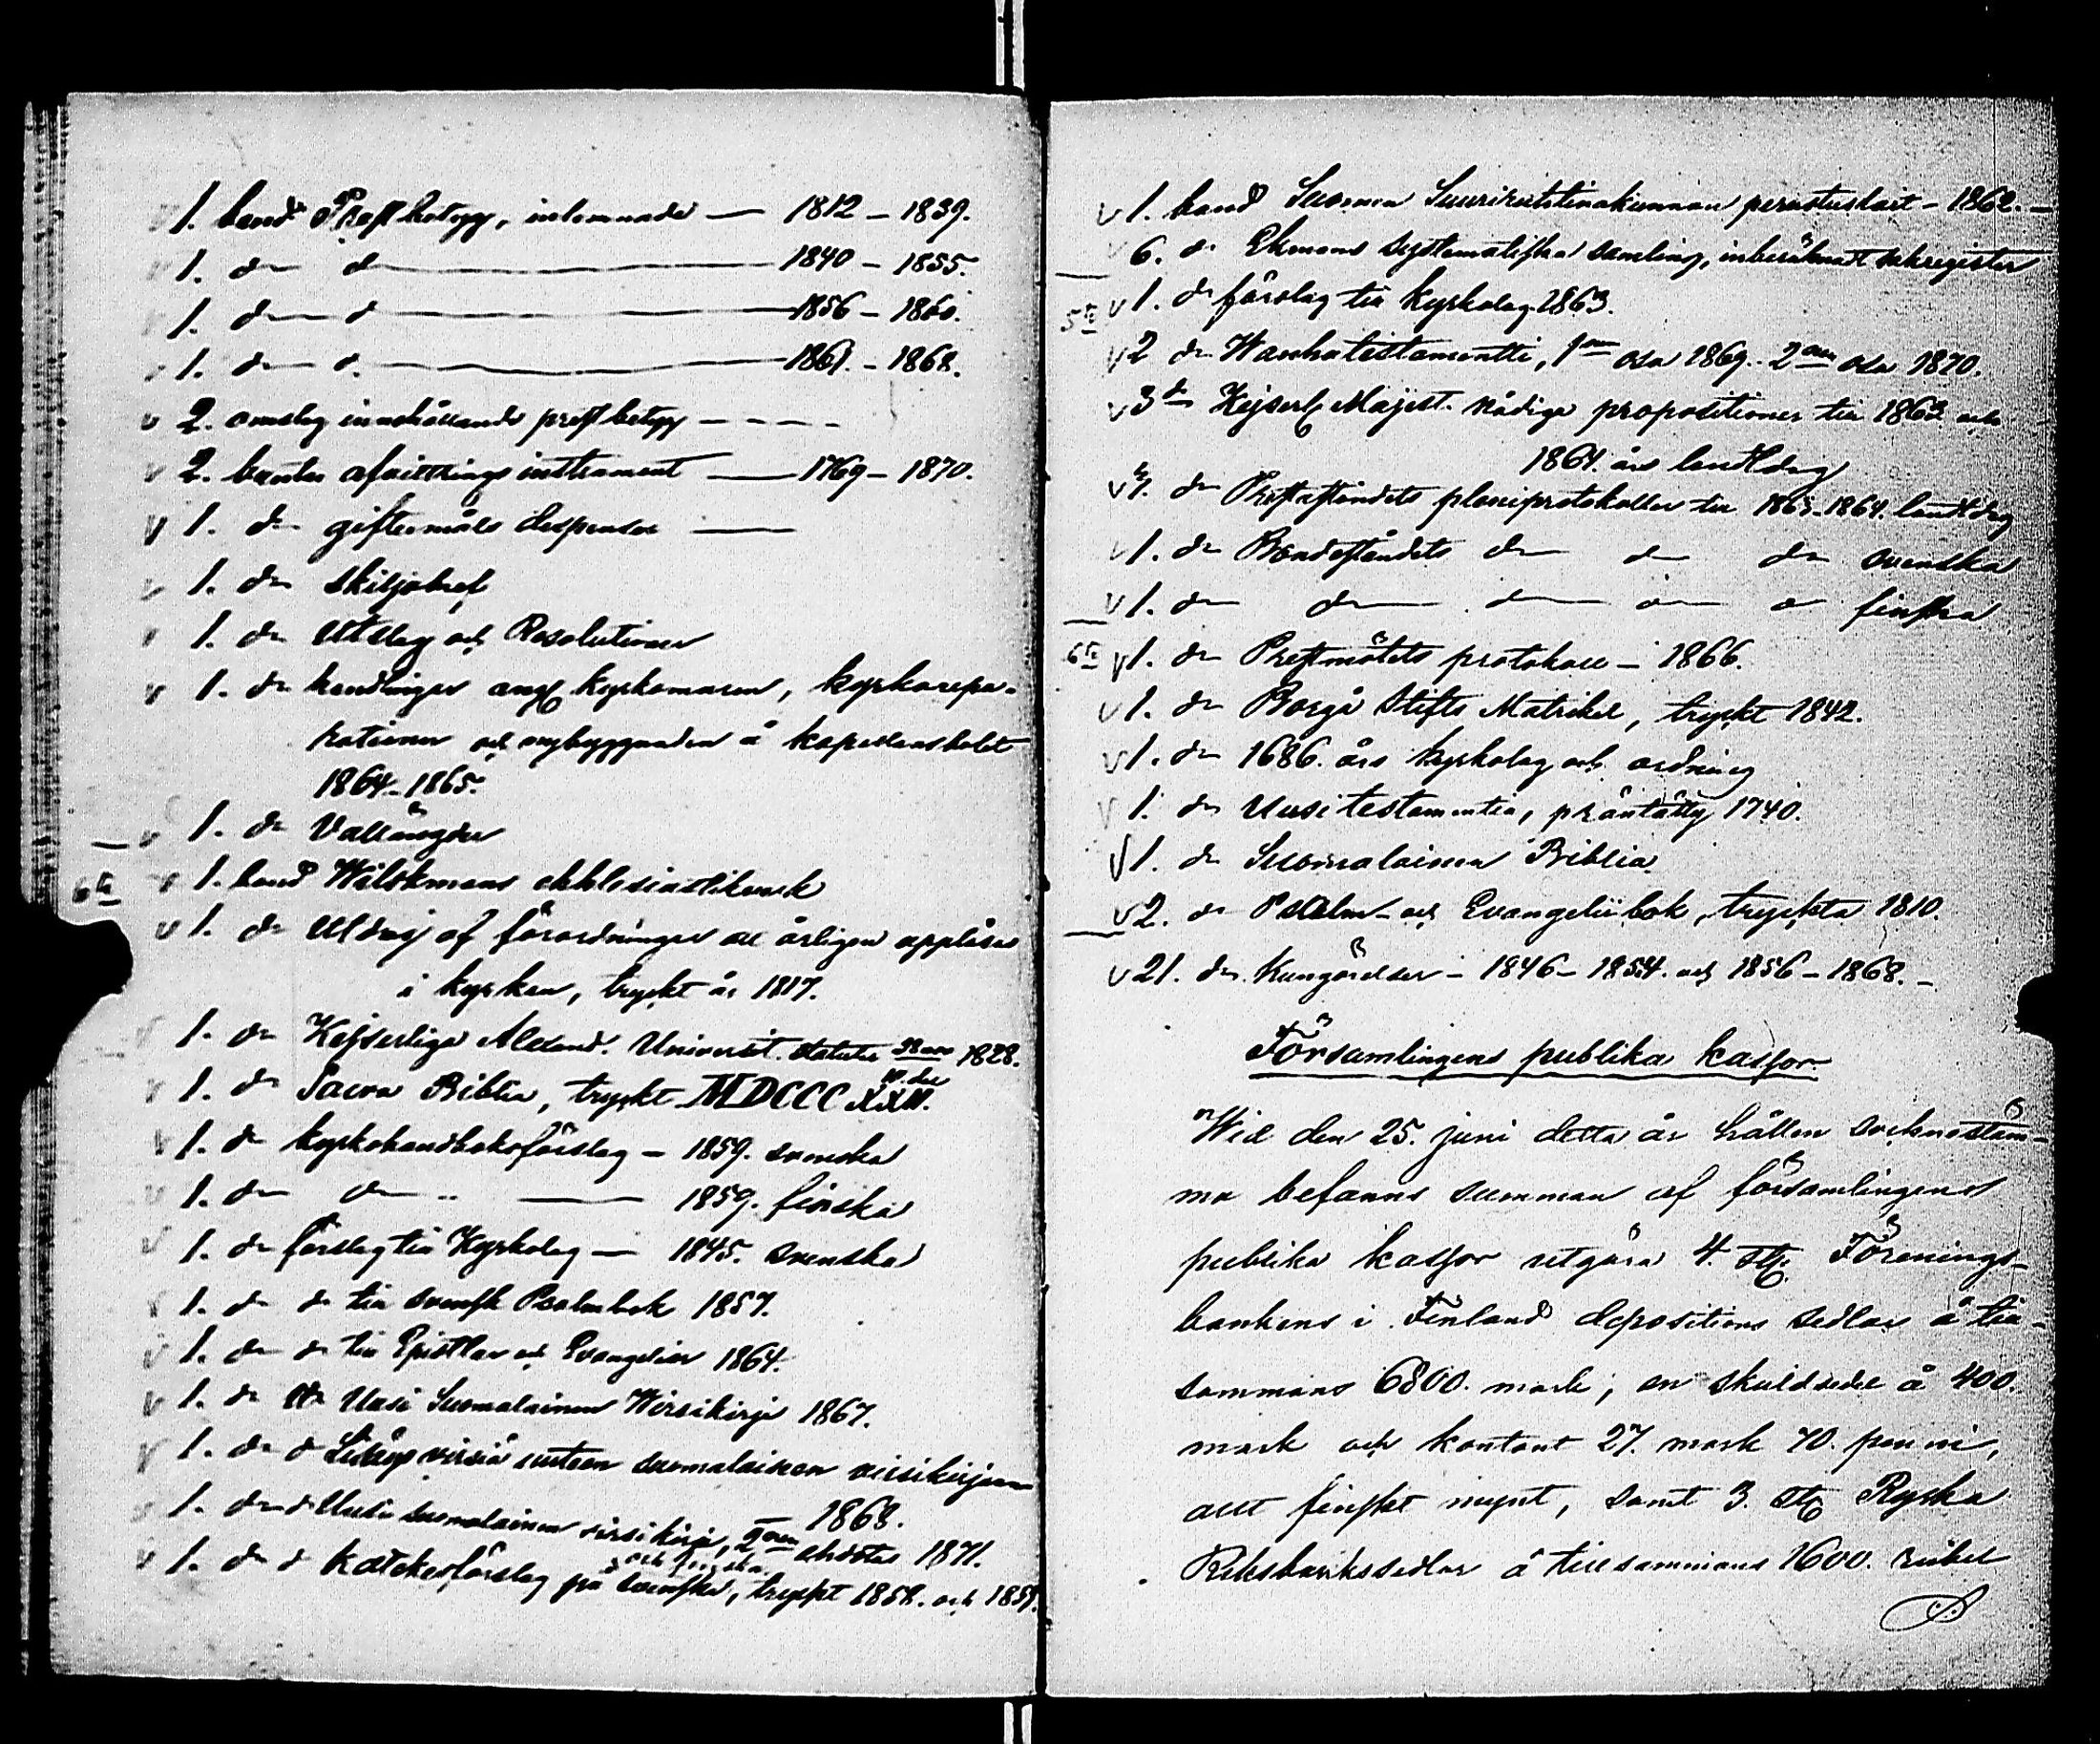 v 1. band Prestbetyg, inlemnade — 1812 – 1839.
v 1. do d — 1840 – 1855.
v 1. do d — 1856 – 1860.
v 1. do d. — 1861. – 1868.
v 2. omslag innehållande prestbetyg – – – –
v 2. bunter afvittrings instrument — 1769 – 1870.
v 1. do giftermåls dispenser —
v 1. do skiljobref
v 1. do Utslag och Resolutioner
v 1. do handlingar angde kyrkomuren, kyrkorepa-
rationer och nybyggnaden å kapellansbolet
1864–1865.
v 1. do Vallängder
6te v 1. band Wilskmans ekklesiastikverk
v 1. do Utdrag af förordningar att årligen uppläsas
i kyrkan, tryckt år 1817.
v 1. do Kejserliga Alexand. Universit. statuter 1828.
v 1. do Sacra Biblia, tryckt MDCCCXXIV.
v 1. do kyrkohandboksförslag – 1859. svenska
v 1. do do " — 1859. finska
v 1. do förslag till Kyrkolag — 1845. svenska
v 1. do do till svensk Psalmbok 1857.
v 1. do do till Epistlar och Evangelier 1864.
v 1. do Uusi Suomalainen Wirsikirja 1867.
v 1. do d Lisäys virsiä uuteen suomalaiseen virsikirjaan
1868.
v 1. do d Uusi suomalainen virsikirja, 2nen ehdotus 1871.
och finska
v 1. do d Katekesförslag på svenska, tryckt 1858. och 1859.
v 1. band Suomen Suuriruhtinakunnan perustuslait – 1862. –
v 6. d Ekmans systematiska samling, inberäknadt sakregister
5te v 1. do förslag till kyrkolag 1863.
v 2 do Wanhatestamentti, 1nen osa 1869. 2nen osa 1870.
v 3 do Kejserl. Majest. nådiga propositioner till 1863 och
1864. års landtdag
v 7. do Presteståndets pleniprotokoller till 1863–1864. landtdag
v 1. do Bondeståndets do do do svenska
v 1. do do do do d finska
6te v 1. do Prestmötets protokoll – 1866.
v 1. do Borgå Stifts Matrikel, tryckt 1842.
v 1. do 1686. års kyrkolag och ordning
v 1. do Uusi testamentti, präntätty 1740.
v 1. do Suomalainen Biblia.
v 2. do Psalm- och Evangelii bok, tryckta 1810.
v 21. do Kungörelser – 1846 – 1854. och 1856 – 1868. –
Församlingens publika kassor.
Wid den 25. juni detta år hållen sockenstäm-
ma befanns summan af församlingens
publika kassor utgöra 4. st. Förenings-
bankens i Finland depositions sedlar å till-
sammans 6800. mark, en skuldsedel å 400.
mark och kontant 27. mark 70. penni,
allt finskt mynt, samt 3. st. Ryska
Riksbankssedlar å tillsammans 1600. rubel